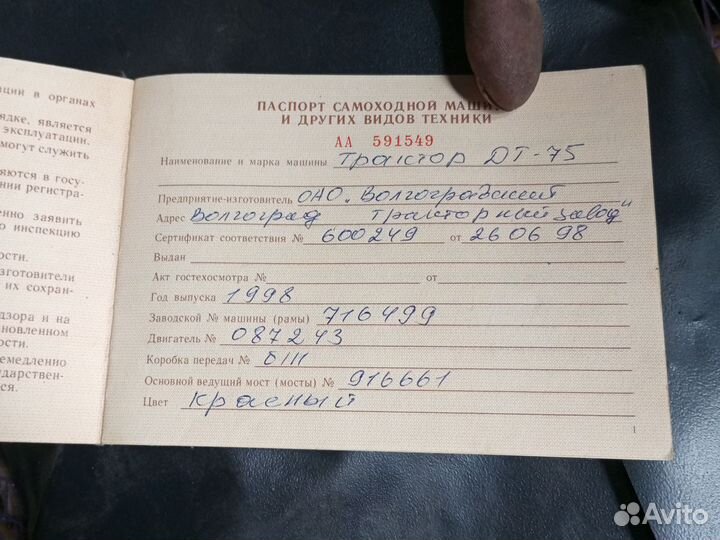 ции в органах
ядке, является
эксплуатации.
могут служить
яются в госу-
нии регистра-
нно заявить
ю инспекцию
ости.
зготовители
их сохран-
дзора и на
новленном
ости.
емедленно
ударствен-
ся.
ПАСПОРТ САМОХОДНОЙ МАШИ
И ДРУГИХ ВИДОВ ТЕХНИКИ
АА 591549
Наименование и марка машины Трактор ДТ-75
Предприятие-изготовитель ОАО "Волгоградский
Адрес Волгоград тракторный завод"
Сертификат соответствия № 600249 от 26 06 98
Выдан
Акт гостехосмотра № от
Год выпуска 1998
Заводской № машины (рамы) 716499
Двигатель № 087243
Коробка передач № б/н
Основной ведущий мост (мосты) № 916661
Цвет красный
1
Avito